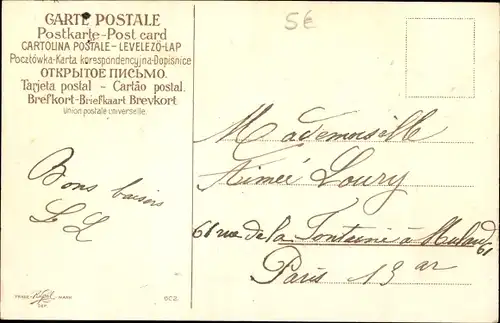 CARTE POSTALE
Postkarte-Post card
CARTOLINA POSTALE-LEVELEZÖ-LAP
Pocztówka-Karta korespondencyjna-Dopisnice
ОТКРЫТОЕ ПИСЬМО.
Tarjeta postal - Cartão postal.
Brefkort-Briefkaart Brevkort.
Union postale universelle.
5€
Mademoiselle
Aimée Loury
61 rue de la Fontaine à Mulard
61
Paris 13 ar
Bons baisers
L L
TRADE MARK
DEP.
602.